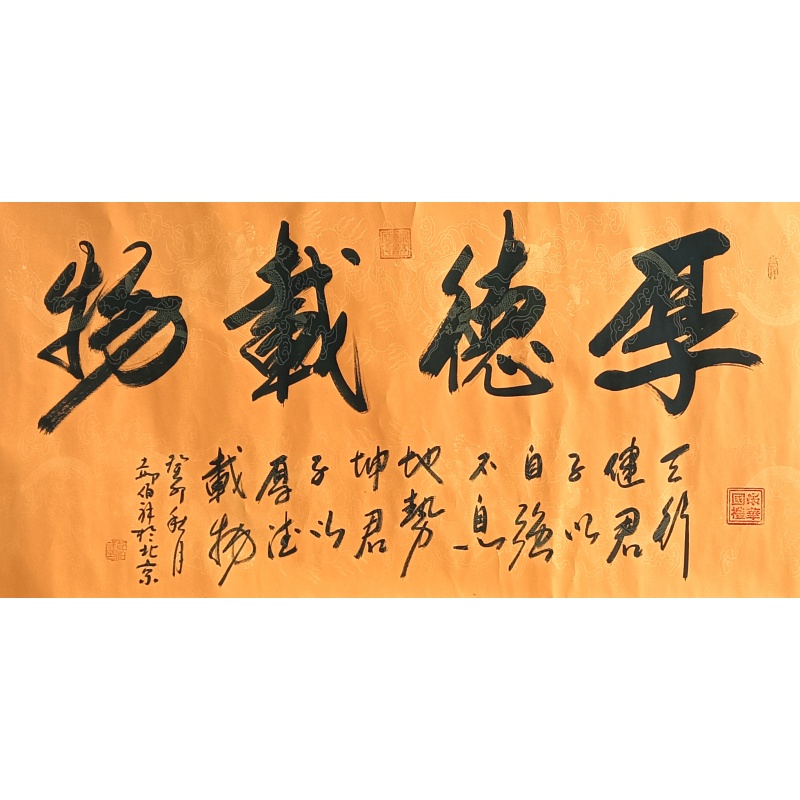 厚德載物
天行
健君
子以
自強
不息
地勢
坤君
子以
厚德
載物
癸卯秋月
伯祥於北京